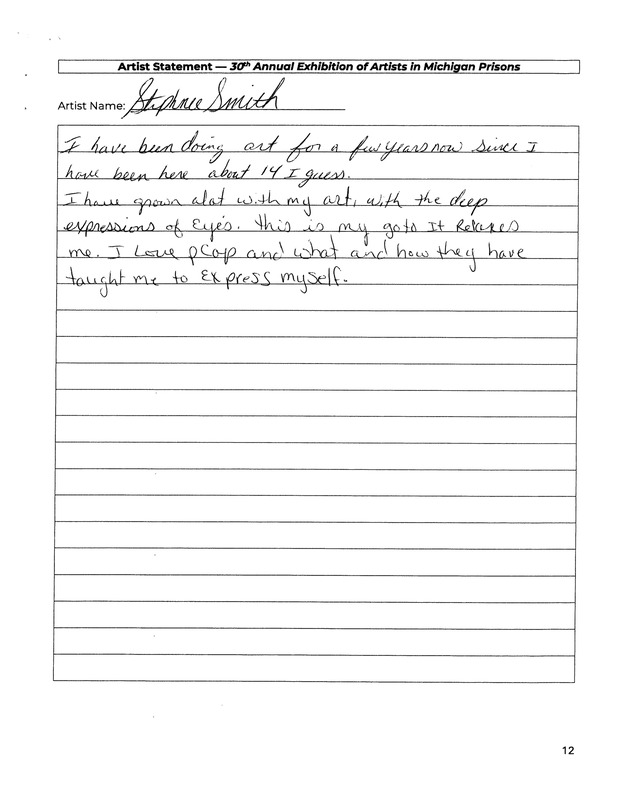 Artist Statement — 30th Annual Exhibition of Artists in Michigan Prisons
Artist Name: Stephnee Smith
I have been doing art for a few years now since I
have been here about 14 I guess.
I have grown alot with my art, with the deep
expressions of Eyes. this is my goto It Relaxes
me. I Love pCap and what and how they have
taught me to Express myself.
12